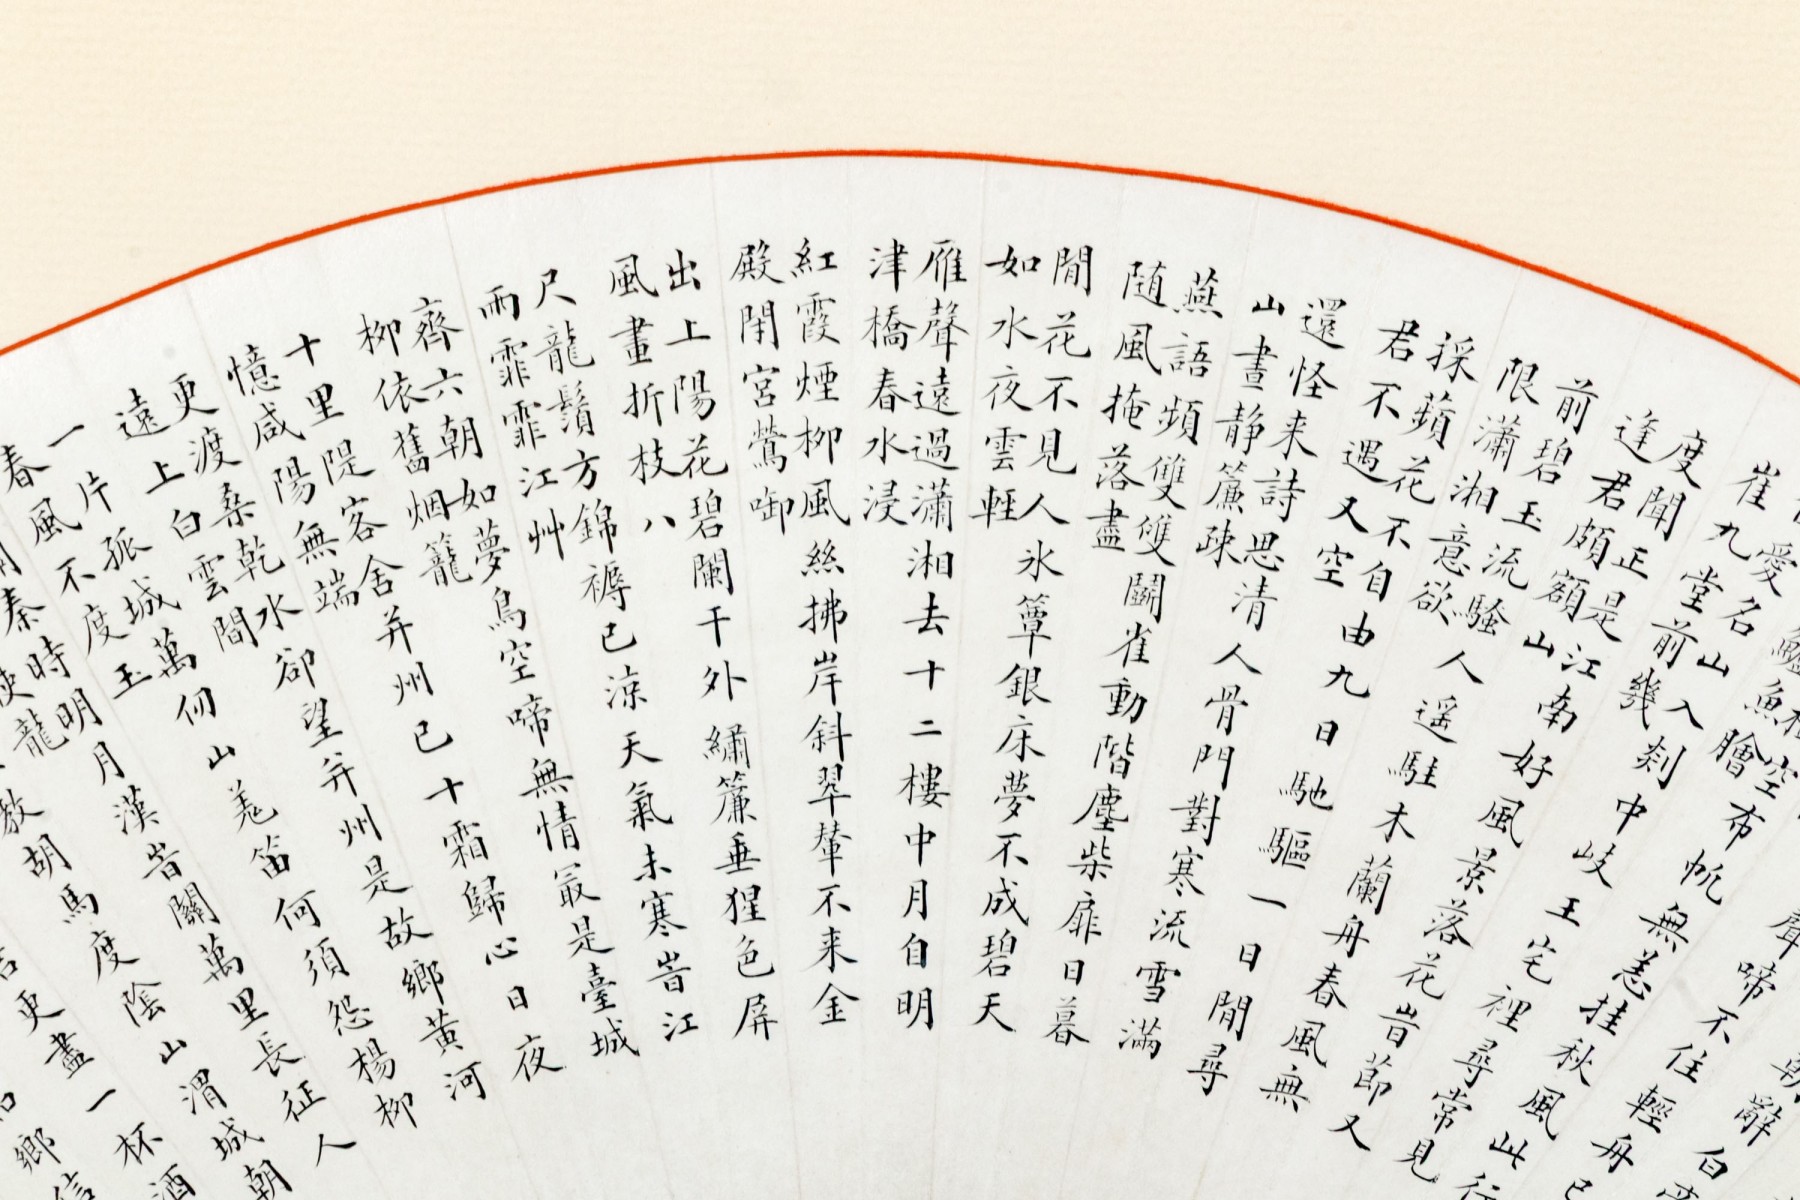 朝辭白
聲啼不住輕舟已
空布帆無恙挂秋風此行
鱸魚膾
愛名山入剡中岐王宅裡尋常見
崔九堂前幾
度聞正是江南好風景落花旹節又
逢君頗額山
前碧玉流騷人遥駐木蘭舟春風無
限瀟湘意欲
採蘋花不自由九日馳驅一日閒尋
君不遇又空
還怪来詩思清人骨門對寒流雪滿
山晝静簾疎
燕語頻雙雙鬪雀動階塵柴扉日暮
随風掩落盡
閒花不見人氷簟銀床夢不成碧天
如水夜雲輕
雁聲遠過瀟湘去十二樓中月自明
津橋春水浸
紅霞煙柳風絲拂岸斜翠輦不来金
殿閉宮鶯啣
出上陽花碧闌干外繡簾垂猩色屏
風畫折枝八
尺龍鬚方錦褥已涼天氣未寒旹江
雨霏霏江艸
齊六朝如夢鳥空啼無情最是臺城
柳依舊烟籠
十里隄客舍并州已十霜歸心日夜
憶咸陽無端
更渡桑乾水卻望并州是故鄉黃河
遠上白雲間
一片孤城萬仞山羗笛何須怨楊柳
春風不度玉
關秦時明月漢旹關萬里長征人
使龍
教胡馬度陰山渭城朝
更盡一杯酒
鄉信